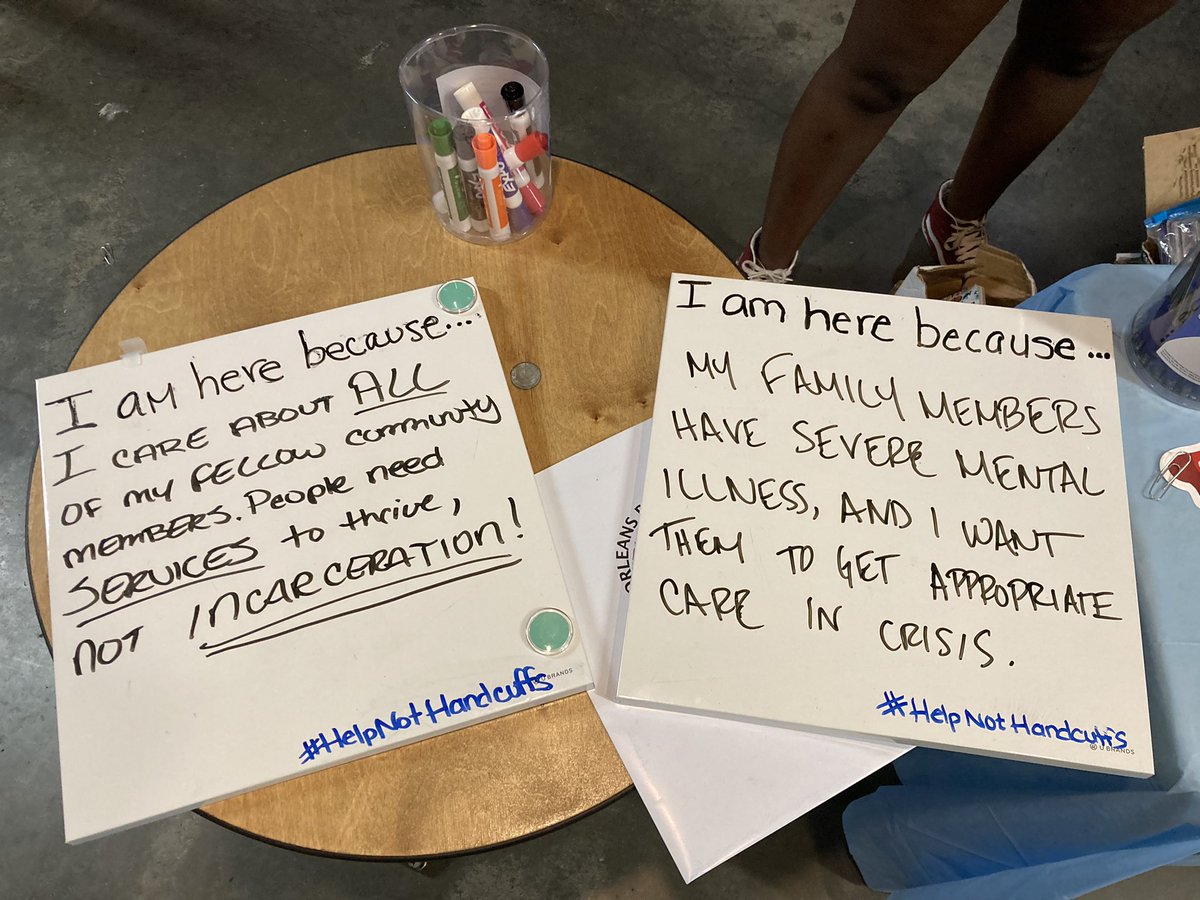 I am here because....
I CARE ABOUT ALL
OF MY FELLOW COMMUNITY
MEMBERS. People need
SERVICES to thrive,
NOT INCARCERATION!
#HelpNotHandcuffs
BRANDS
I am here because...
MY FAMILY MEMBERS
HAVE SEVERE MENTAL
ILLNESS, AND I WANT
THEM TO GET APPROPRIATE
CARE IN CRISIS.
#HelpNotHandcuffs
U BRANDS
EXPO
ORLEANS